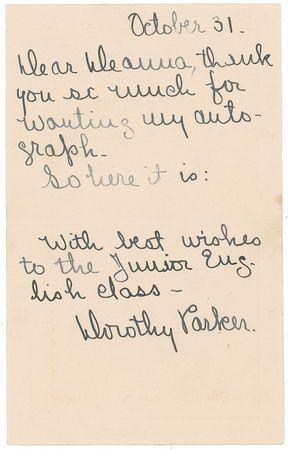 October 31.
Dear Deanna, thank
you so much for
wanting my auto-
graph.
So here it is:
With best wishes
to the Junior Eng-
lish class —
Dorothy Parker.